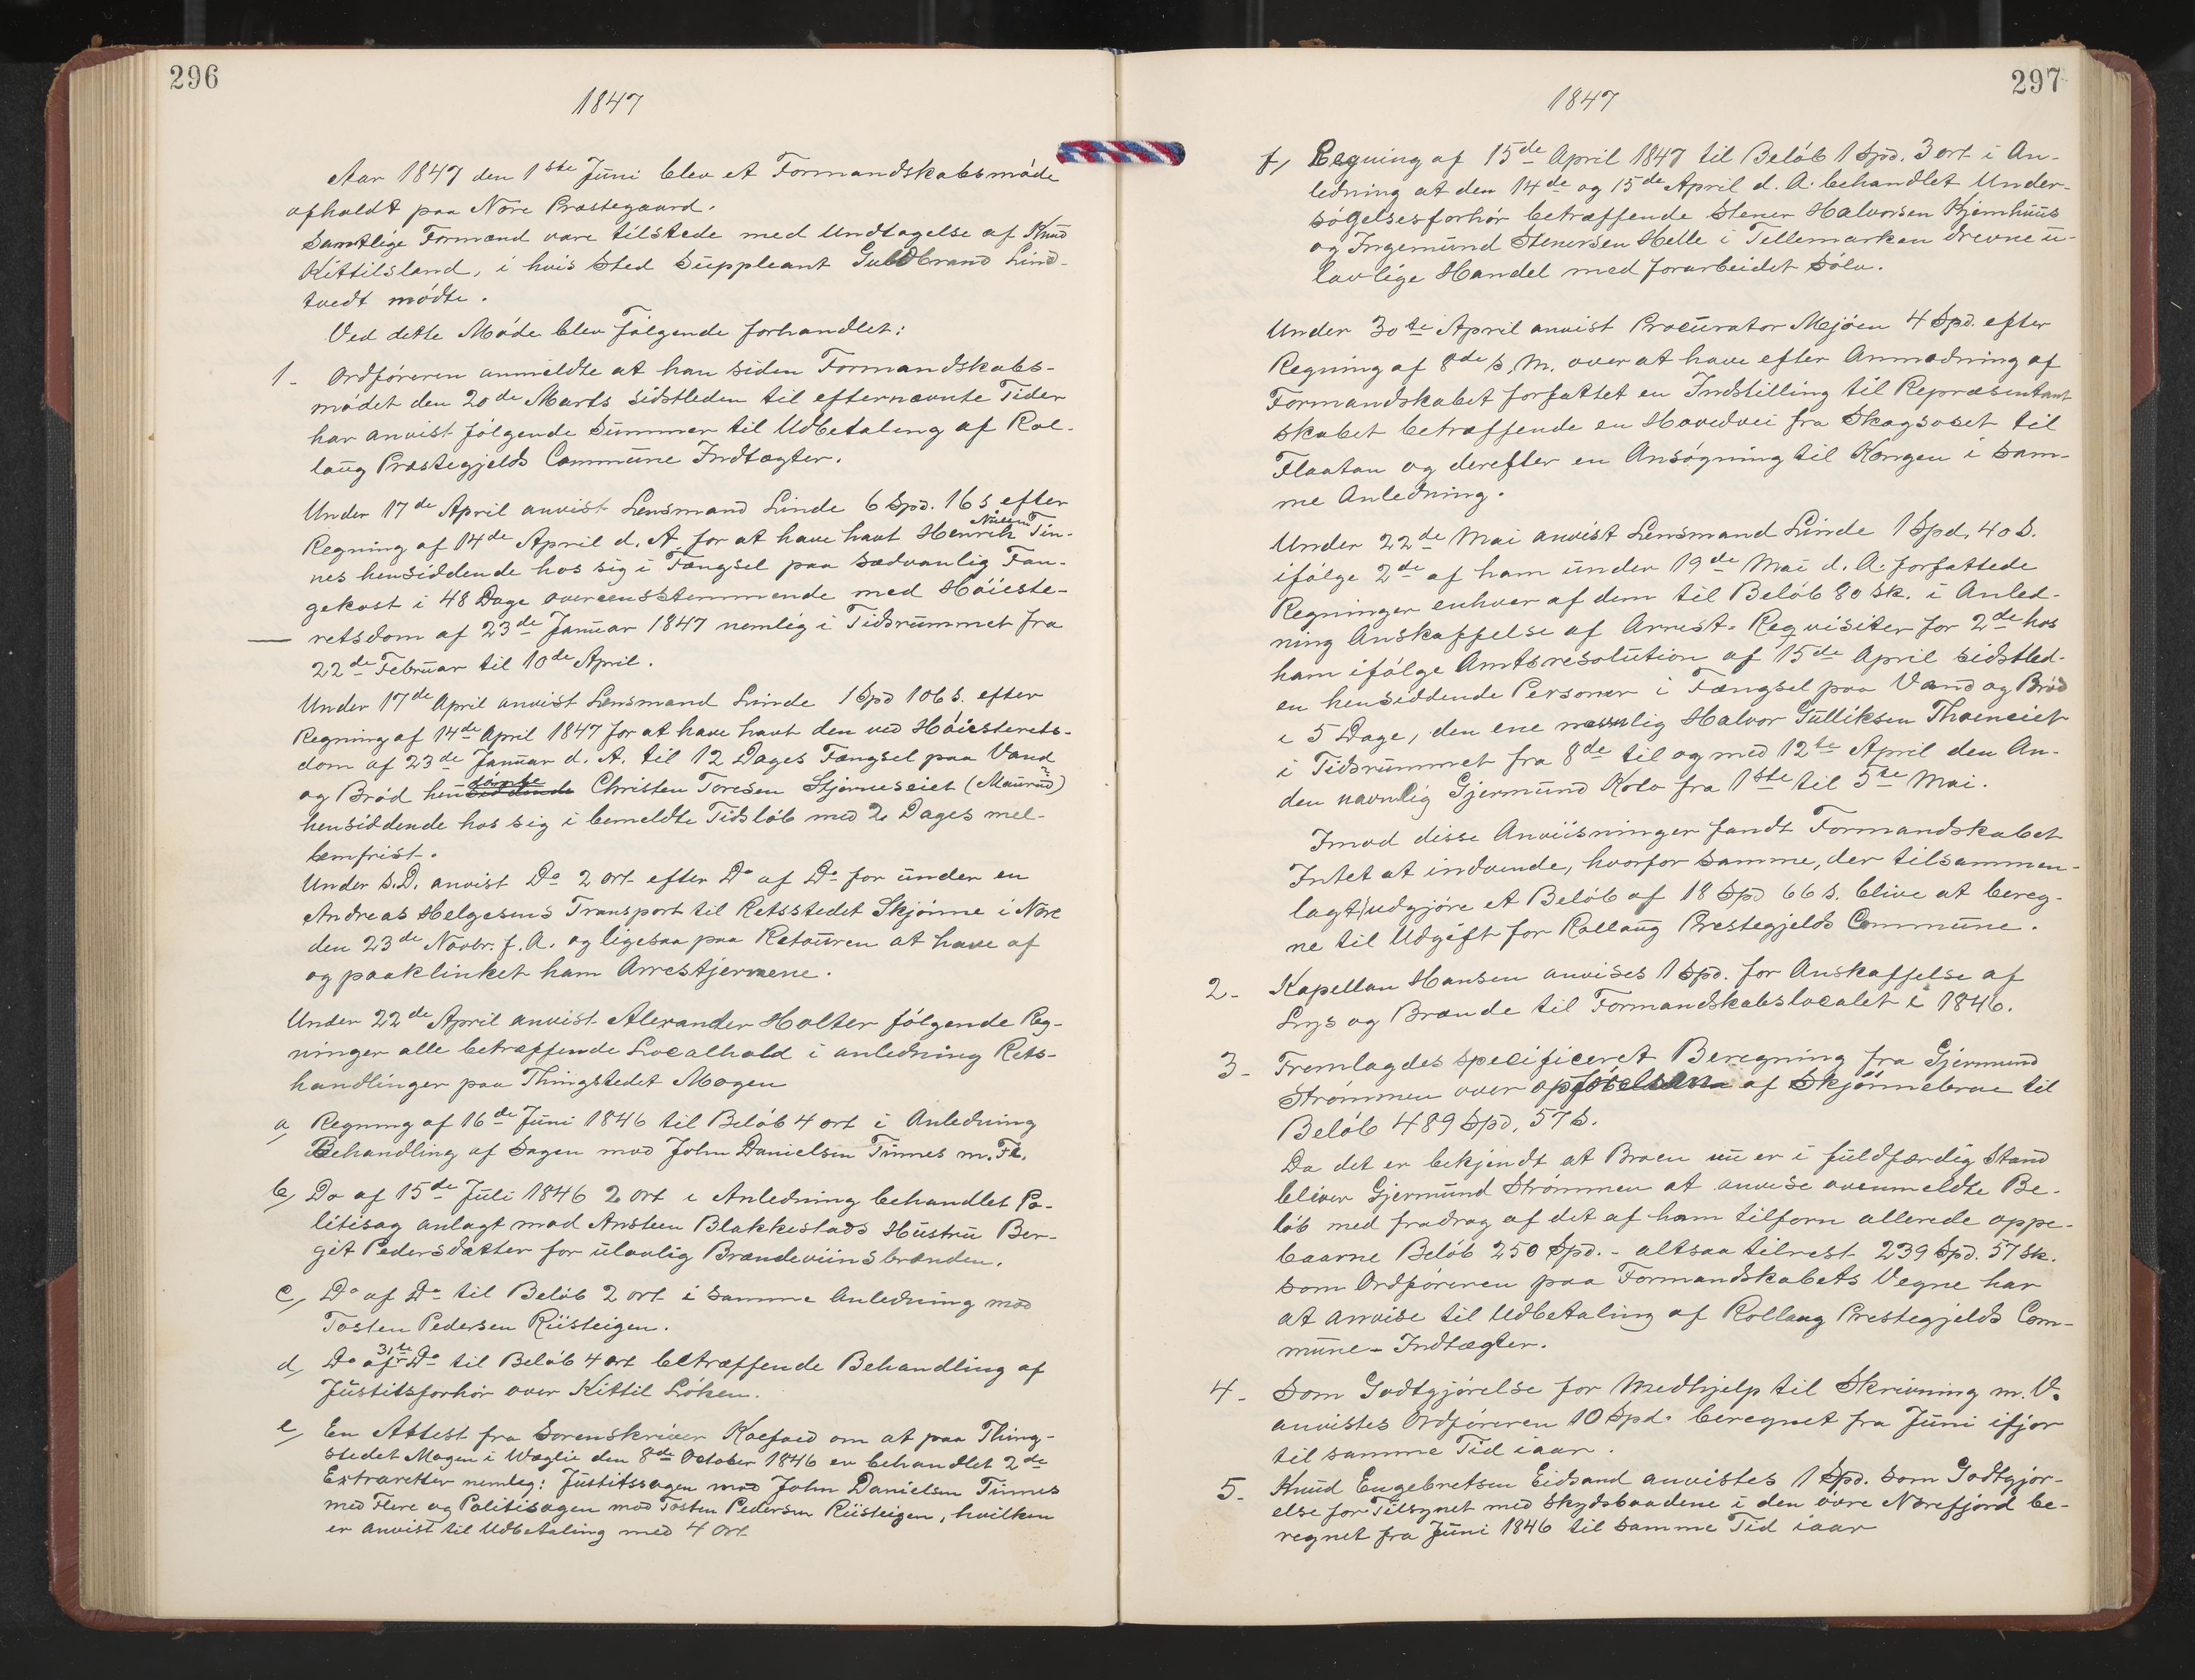 296
1847
Aar 1847 den 1ste Juni blev et Formandskabsmøde
afholdt paa Nore Præstegaard.
Samtlige Formænd vare tilstede med Undtagelse af Knud
Kittilsland, i hvis Sted Suppleant Guldbrand Lind-
tvedt mødte.
Ved dette Møde blev følgende forhandlet:
1- Ordføreren anmeldte at han siden Formandskabs-
mødet den 20de Marts sidstleden til efternævnte Tider
har anvist følgende Summer til Udbetaling af Rol-
laug Præstegjelds Commune Indtægter.
Under 17de April anvist Lensmand Linde 6 Spd. 16 s efter
Regning af 14de April d. A. for at have havt Henrik Nilsen Tin-
nes hensiddende hos sig i Fængsel paa sædvanlig Fan-
gekost i 48 Dage overeensstemmende med Høieste-
retsdom af 23de Januar 1847 nemlig i Tidsrummet fra
22de Februar til 10de April.
Under 17de April anvist Lensmand Linde 1 Spd 106 s. efter
Regning af 14de April 1847 for at have havt den ved Høiesterets-
dom af 23de Januar d. A. til 12 Dages Fængsel paa Vand
og Brød hensiddende dømte Christen Toresen Stjerneseiet (Maurud)
hensiddende hos sig i bemeldte Tidsløb med 2 Dages mel-
lemfrist.
Under s.D. anvist Do 2 ort efter Do af Do for under en
Andreas Helgesens Transport til Retsstedet Skjønne i Nore
den 23de Novbr. f. A. og ligesaa paa Retouren at have af
og paaklinket ham Arrestjernene.
Under 22de April anvist Alexander Holter følgende Reg-
ninger alle betræffende Localhold i anledning Rets-
handlinger paa Thingstedet Mogen
a, Regning af 16de Juni 1846 til Beløb 4 ort i Anledning
Behandling af Sagen mod John Danielsen Tinnes m. Fl.
b, Do af 15de Juli 1846 2 ort i Anledning behandlet Po-
litisag anlagt mod Ansteen Blakkestads Hustru Ber-
git Pedersdatter for ulovlig Brændeviinsbrænden.
c, Do af Do til Beløb 2 ort i samme Anledning mod
Tosten Pedersen Riisteigen.
d, Do af 31te Do til Beløb 4 ort betræffende Behandling af
Justitsforhør over Kittil Løken.
e, En Attest fra Sorenskriver Koefoed om at paa Thing-
stedet Mogen i Wæglie den 8de October 1846 er behandlet 2de
Extraretter nemleg: Justitssagen mod John Danielsen Tinnes
med Flere og Politisagen mod Tosten Pedersen Riisteigen, hvilken
er anvist til Udbetaling med 4 Ort
297
1847
f, Regning af 15de April 1847 til Beløb 1 Spd. 3 ort i An-
ledning at den 14de og 15de April d. A. behandlet Under-
søgelsesforhør betræffende Stener Halvorsen Kjemhuus
og Ingemund Stenersen Helle i Tellemarken drevne u-
lovlige Handel med forarbeidet Sølv.
Under 30te April anvist Procurator Mejøen 4 Spd. efter
Regning af 8de s. M. over at have efter Anmodning af
Formandskabet forfattet en Indstilling til Repræsentant
skabet betræffende en Hovedvei fra Skagsoset til
Flaatan og derefter en Ansøgning til Kongen i sam-
me Anledning.
Under 22de Mai anvist Lensmand Linde 1 Spd. 40 s.
ifølge 2de af ham under 19de Mai d. A. forfattede
Regninger enhver af dem til Beløb 80 sk. i Anled-
ning Anskaffelse af Arrest-Requisiter for 2de hos
ham ifølge Amtsresolution af 15de April sidstled-
en hensiddende Personer i Fængsel paa Vand og Brød
i 5 Dage, den ene navnlig Halvor Gulliksen Thoeneiet
i Tidsrummet fra 8de til og med 12te April den An-
den navnlig Gjermund Kolo fra 1ste til 5te Mai.
Imod disse Anviisninger fandt Formandskabet
Intet at indvende, hvorfor samme, der tilsammen-
lagt udgjøre et Beløb af 18 Spd 66 s. blive at bereg-
ne til Udgift for Rollaug Prestegjelds Commune.
2- Kapellan Hansen anvises 1 Spd. for Anskaffelse af
Lys og Brænde til Formandskabslocalet i 1846.
3- Fremlagdes specificeret Beregning fra Gjermund
Strømmen over opførelsen af Skjønnebroe til
Beløb 489 Spd. 57 s.
Da det er bekjendt at Broen nu er i fuldfærdig Stand
bliver Gjermund Strømmen at anvise ovenmeldte Be-
løb med fradrag af det af ham tilforn allerede oppe-
baarne Beløb 250 Spd. - altsaa tilrest 239 Spd. 57 sk.
som Ordføreren paa Formandskabets Vegne har
at anvise til Udbetaling af Rollaug Prestegjelds Com-
mune-Indtægter.
4- Som Godtgjørelse for Medhjelp til Skrivning m. V.
anvistes Ordføreren 10 Spd. beregnet fra Juni ifjor
til samme Tid iaar.
5- Knud Engebretsen Eidsand anvistes 1 Spd. som Godtgjør-
else for Tilsynet med Skydsbaadene i den øvre Norefjord be-
regnet fra Juni 1846 til samme Tid iaar